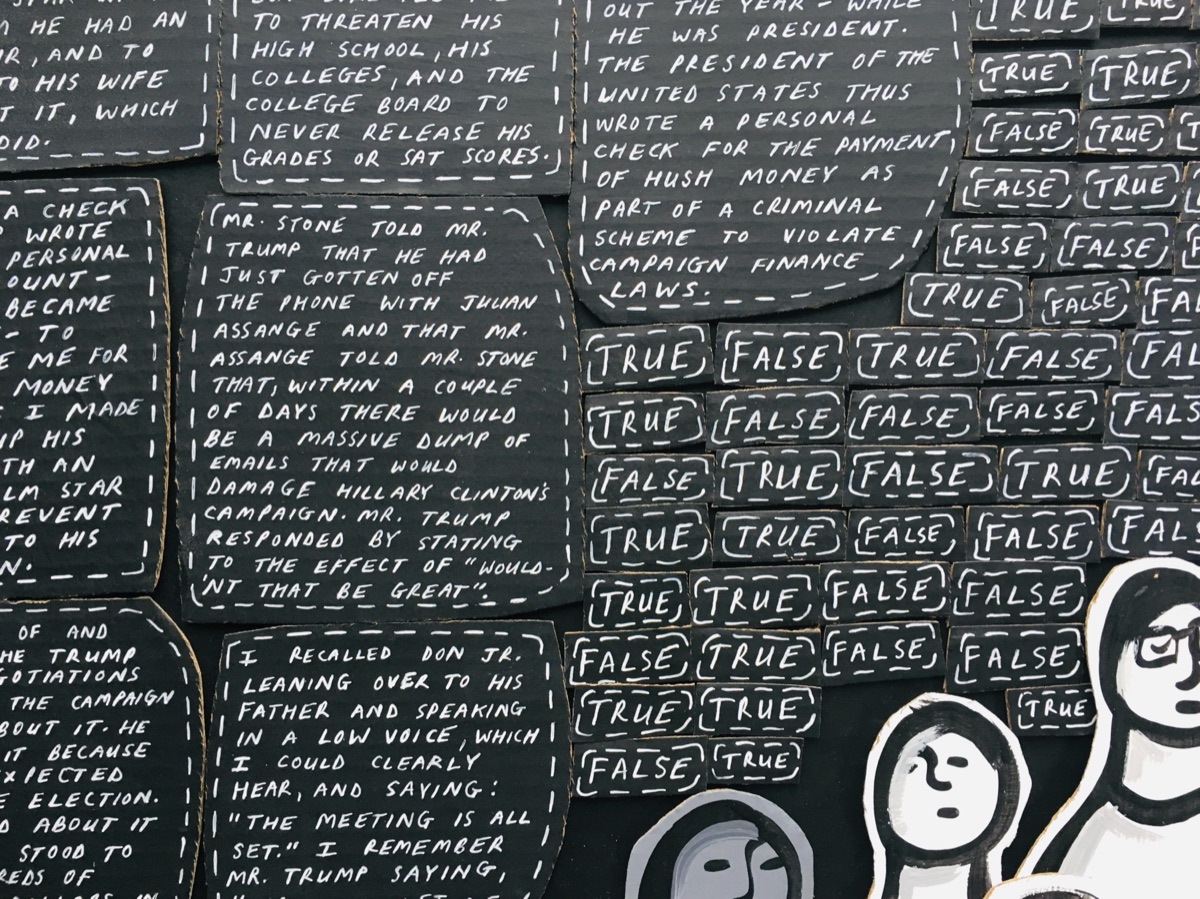 M HE HAD AN
AND TO
TO HIS WIFE
IT, WHICH
DID.
TO THREATEN HIS
HIGH SCHOOL, HIS
COLLEGES, AND THE
COLLEGE BOARD TO
NEVER RELEASE HIS
GRADES OR SAT SCORES.
OUT THE YEAR - WHILE
HE WAS PRESIDENT.
THE PRESIDENT OF THE
UNITED STATES THUS
WROTE A PERSONAL
CHECK FOR THE PAYMENT
OF HUSH MONEY AS
PART OF A CRIMINAL
SCHEME TO VIOLATE
CAMPAIGN FINANCE
LAWS.
A CHECK
WROTE
PERSONAL
OUNT -
BECAME
- TO
E ME FOR
MONEY
I MADE
UP HIS
TH AN
LM STAR
REVENT
TO HIS
N.
MR. STONE TOLD MR.
TRUMP THAT HE HAD
JUST GOTTEN OFF
THE PHONE WITH JULIAN
ASSANGE AND THAT MR.
ASSANGE TOLD MR. STONE
THAT, WITHIN A COUPLE
OF DAYS THERE WOULD
BE A MASSIVE DUMP OF
EMAILS THAT WOULD
DAMAGE HILLARY CLINTON'S
CAMPAIGN. MR. TRUMP
RESPONDED BY STATING
TO THE EFFECT OF "WOULD-
'NT THAT BE GREAT".
OF AND
HE TRUMP
GOTIATIONS
THE CAMPAIGN
BOUT IT. HE
IT BECAUSE
XPECTED
E ELECTION.
D ABOUT IT
STOOD TO
REDS OF
I RECALLED DON JR.
LEANING OVER TO HIS
FATHER AND SPEAKING
IN A LOW VOICE, WHICH
I COULD CLEARLY
HEAR, AND SAYING:
"THE MEETING IS ALL
SET." I REMEMBER
MR. TRUMP SAYING,
TRUE TRUE
TRUE TRUE
FALSE TRUE T
FALSE TRUE
FALSE FALSE F
TRUE FALSE FA
TRUE FALSE TRUE FALSE FAL
TRUE FALSE FALSE FALSE FALS
FALSE TRUE FALSE TRUE FAL
TRUE TRUE FALSE FALSE FAL
TRUE TRUE FALSE FALSE
FALSE TRUE FALSE FALSE
TRUE TRUE TRUE
FALSE TRUE